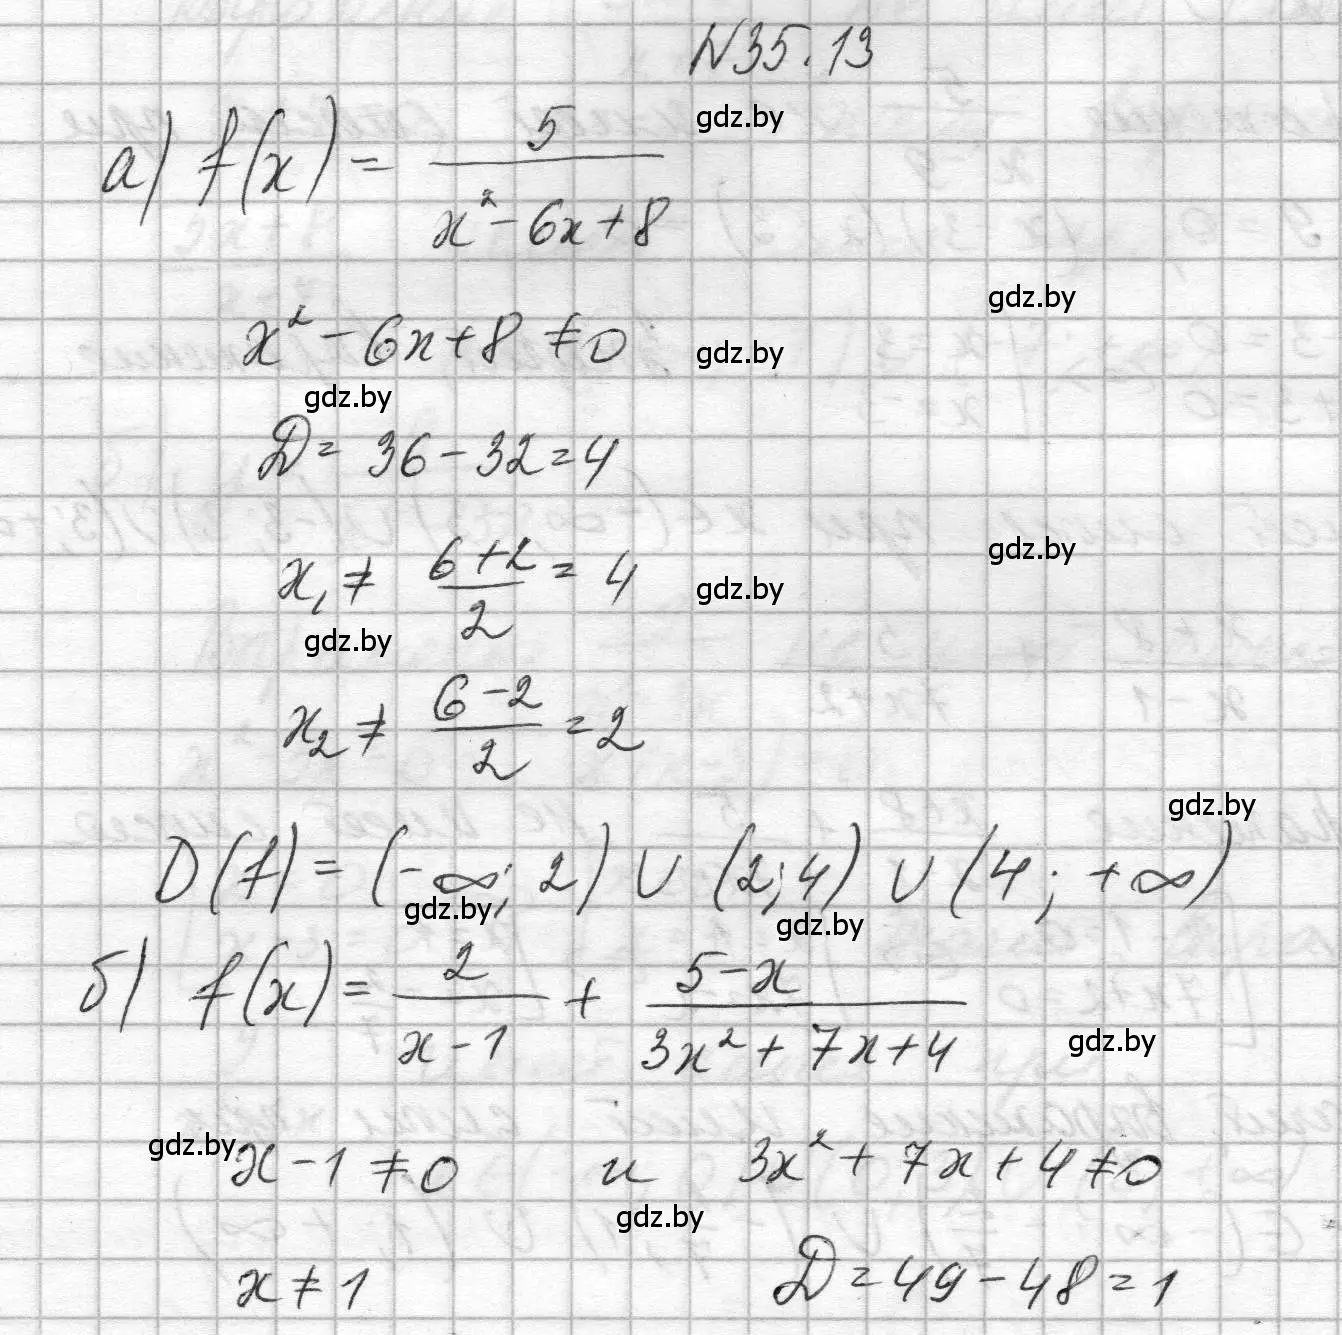 N35.13
gdz.by
а) f(x) = 5 / (x² - 6x + 8)
gdz.by
x² - 6x + 8 ≠ 0
gdz.by
gdz.by
D = 36 - 32 = 4
gdz.by
x₁ ≠ (6 + 2) / 2 = 4
gdz.by
gdz.by
x₂ ≠ (6 - 2) / 2 = 2
gdz.by
D(f) = (-∞; 2) ∪ (2; 4) ∪ (4; +∞)
gdz.by
gdz.by
б) f(x) = 2 / (x - 1) + (5 - x) / (3x² + 7x + 4)
gdz.by
gdz.by
x - 1 ≠ 0 и 3x² + 7x + 4 ≠ 0
gdz.by
x ≠ 1 D = 49 - 48 = 1